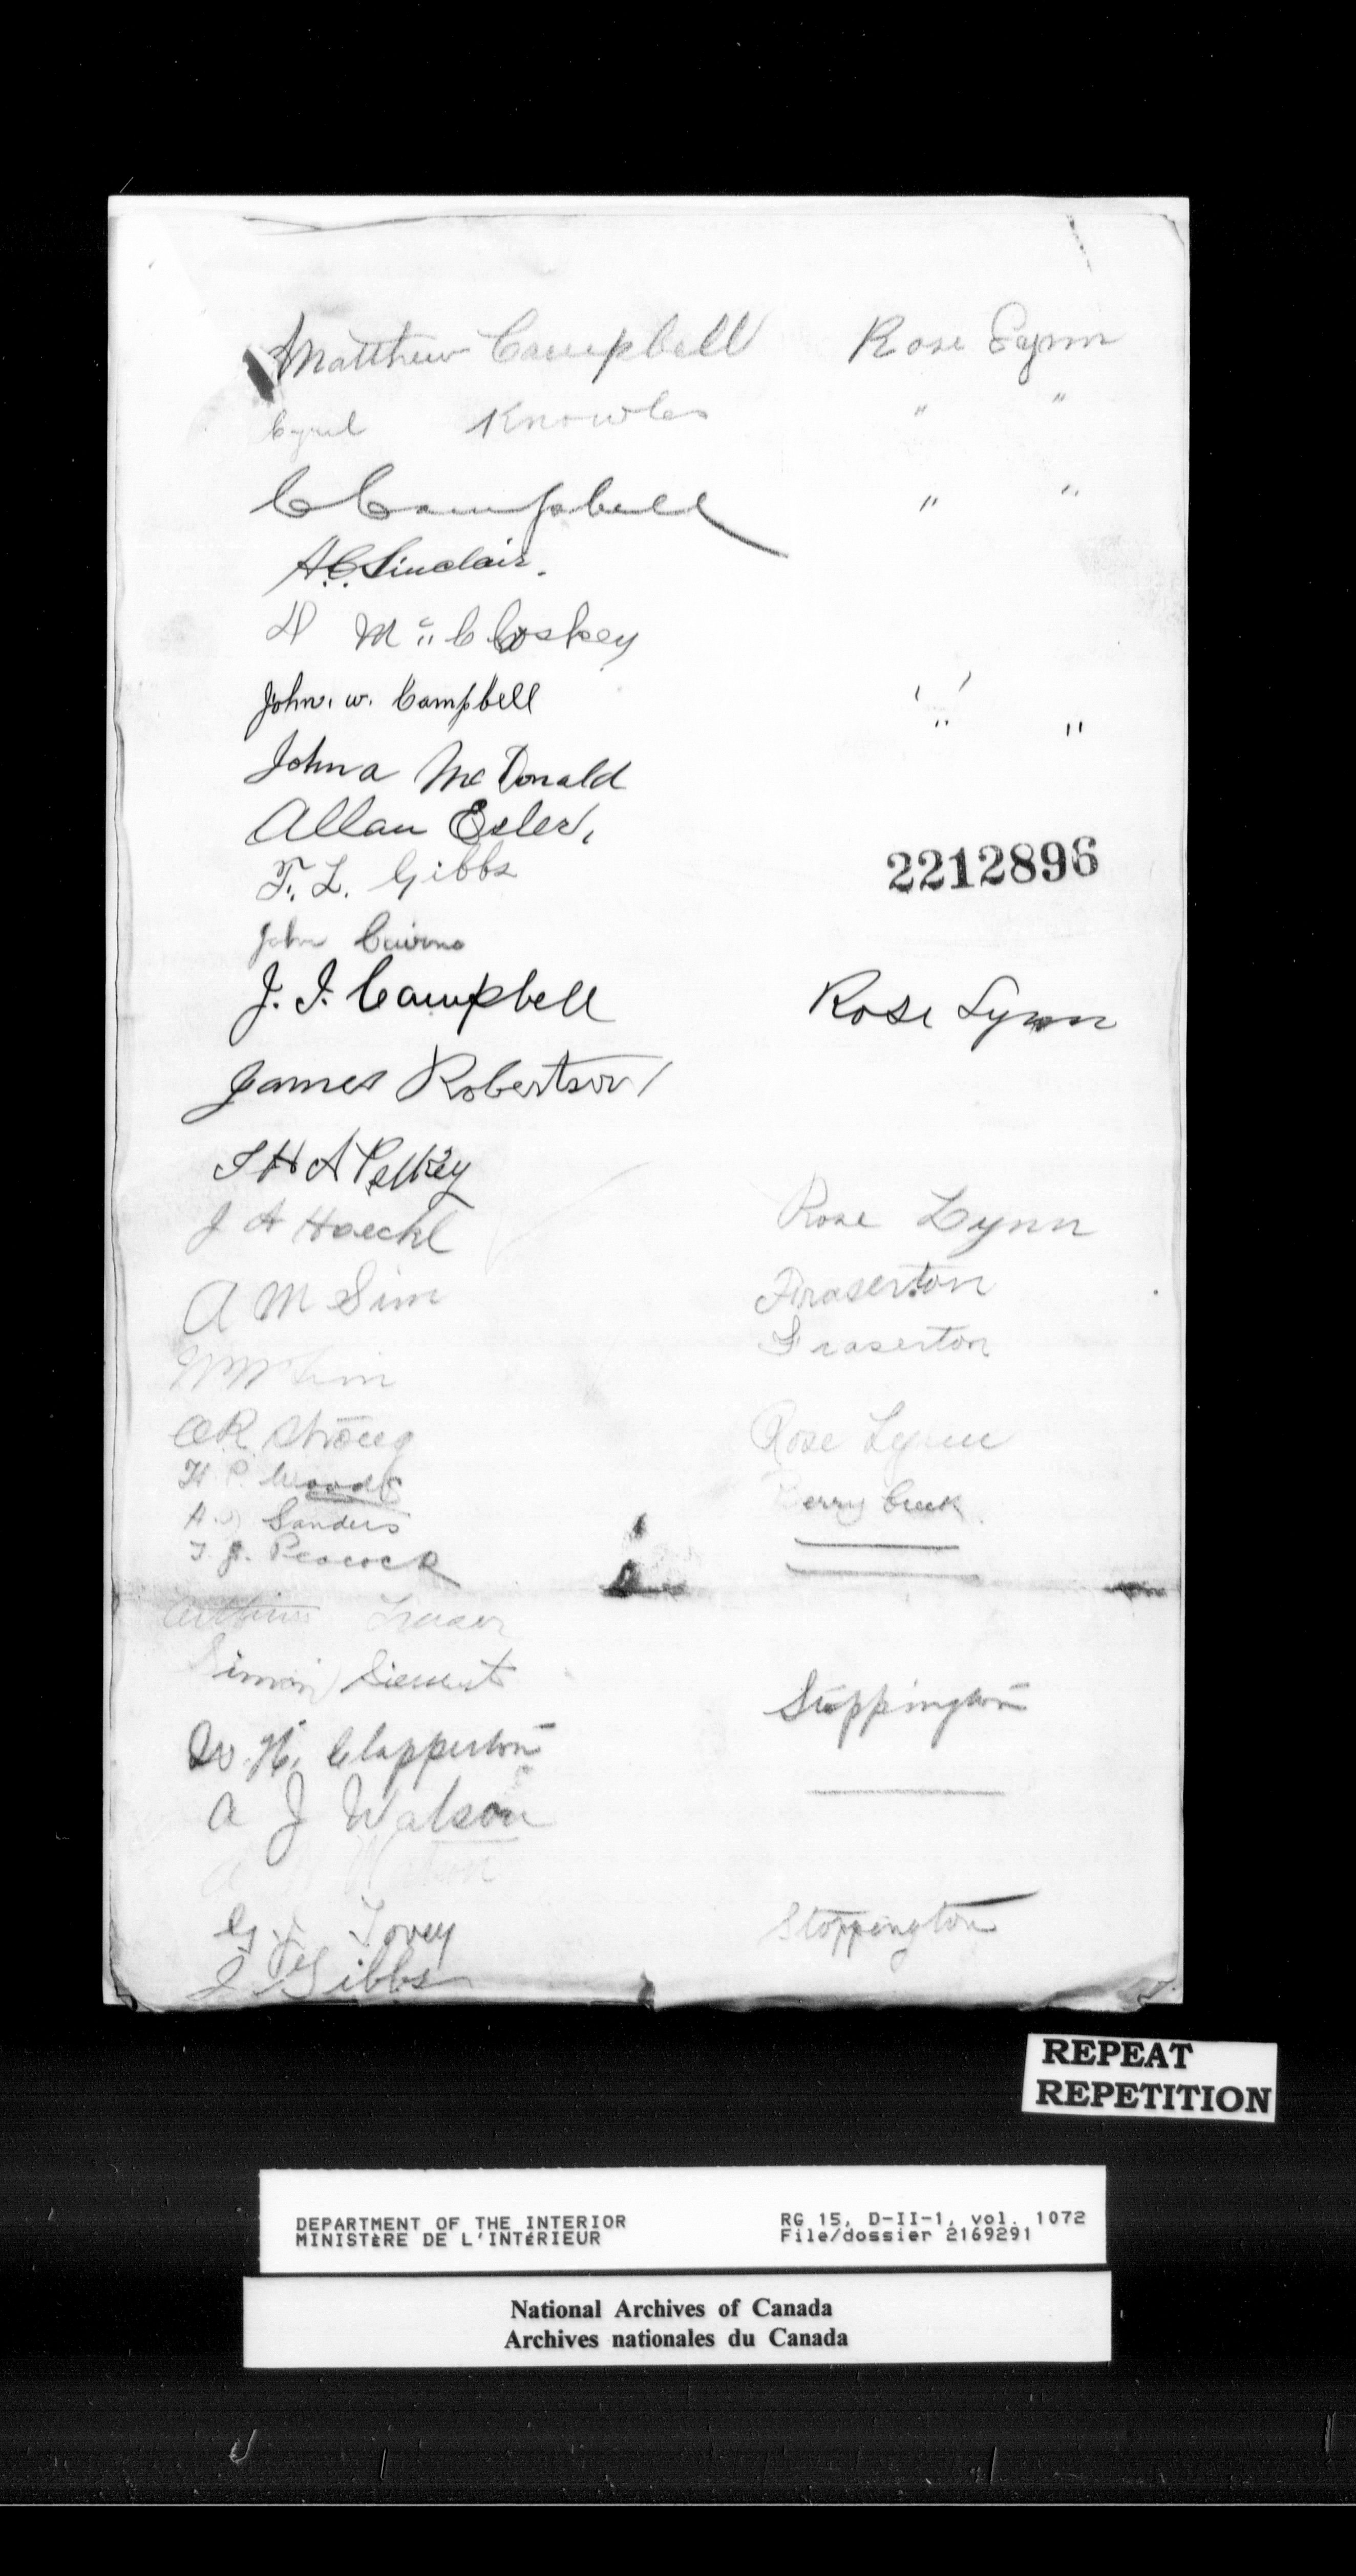 Matthew Campbell Rose Lynn
Cyril Knowles " "
C Campbell " "
A.C. Sinclair.
D Mc Closkey
John. w. Campbell " "
John a McDonald
Allan Esler,
T. L. Gibbs
2212896
John Cairns
J. J. Campbell Rose Lynn
James Robertson
J A Hoeckl Rose Lynn
A M Sim Fraserton
Sim Fraserton
Strong Rose Lynn
H. P. Woods Berry Creek
Sanders
T. J. Peacock
Simon
W. H. Clapperton Stoppington
A J Watson
A Watson
Tovey Stoppington
J Gibbs
REPEAT
REPETITION
DEPARTMENT OF THE INTERIOR RG 15, D-II-1, vol. 1072
MINISTÈRE DE L'INTÉRIEUR File/dossier 2169291
National Archives of Canada
Archives nationales du Canada